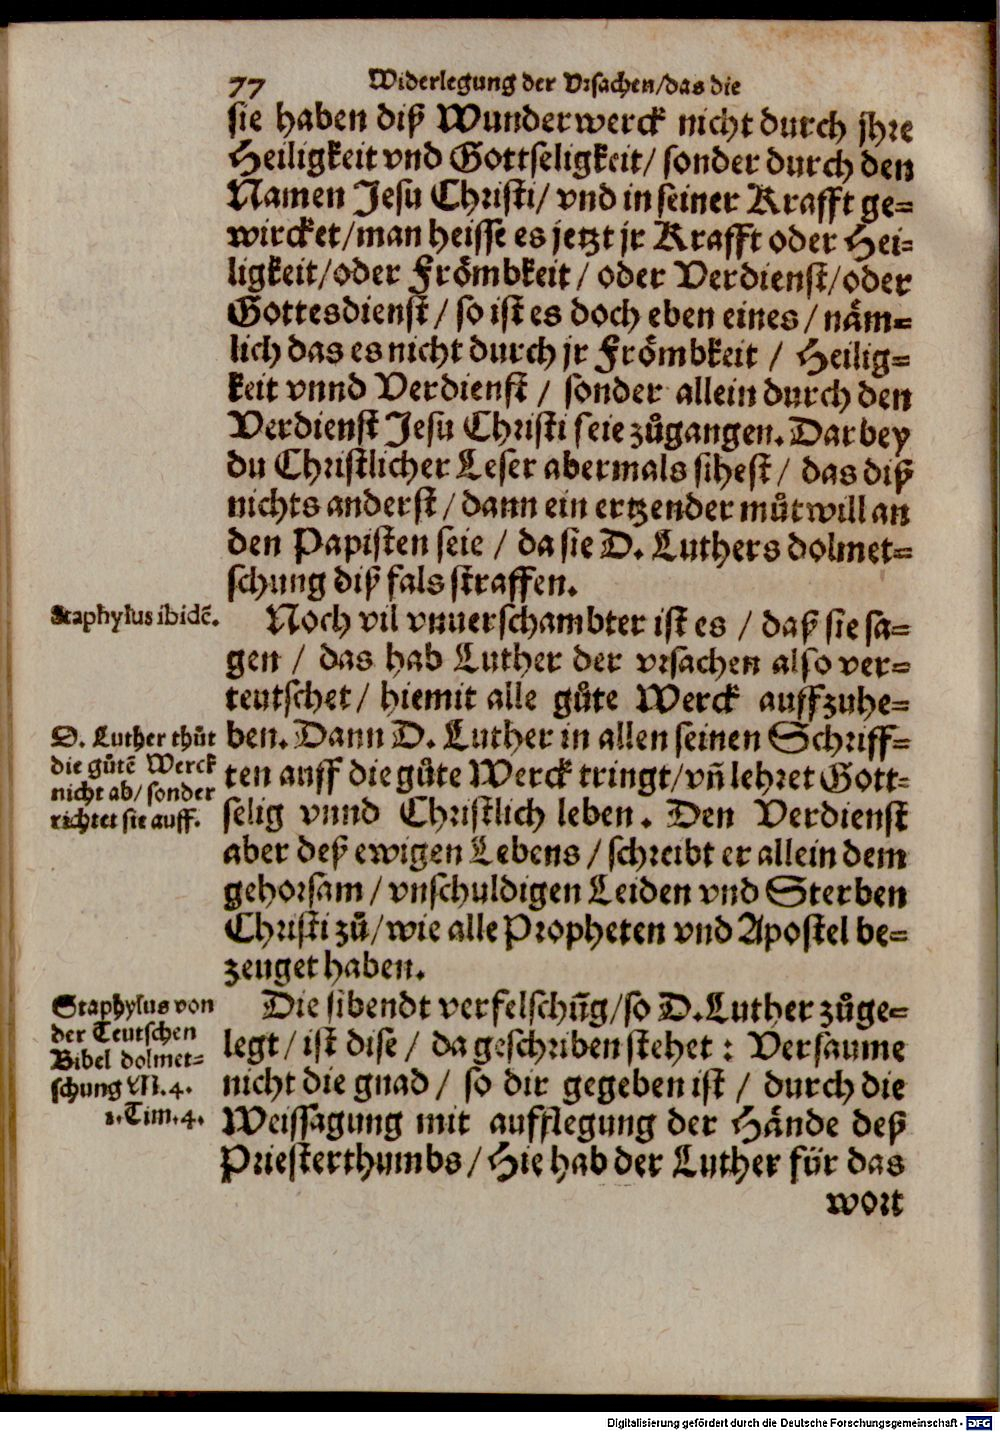 77 Widerlegung der Vrsachen/das die
sie haben diß Wunderwerck nicht durch jhre
Heiligkeit vnd Gottseligkeit/ sonder durch den
Namen Jesu Christi/ vnd in seiner Krafft ge-
wircket/man heisse es jetzt jr Krafft oder Hei-
ligkeit/oder Frömbkeit / oder Verdienst/oder
Gottesdienst / so ist es doch eben eines / näm-
lich das es nicht durch jr Frömbkeit / Heilig-
keit vnnd Verdienst / sonder allein durch den
Verdienst Jesu Christi seie zůgangen. Darbey
du Christlicher Leser abermals sihest / das diß
nichts anderst / dann ein ertzender můtwill an
den Papisten seie / da sie D. Luthers dolmet-
schung diß fals straffen.
Staphylus ibidē.
Noch vil vnuerschambter ist es / daß sie sa-
gen / das hab Luther der vrsachen also ver-
teutschet / hiemit alle gůte Werck auffzuhe-
ben. Dann D. Luther in allen seinen Schriff-
ten auff die gůte Werck tringt/vn̄ lehret Gott-
selig vnnd Christlich leben. Den Verdienst
aber deß ewigen Lebens / schreibt er allein dem
gehorsam / vnschuldigen Leiden vnd Sterben
Christi zů/wie alle Propheten vnd Apostel be-
zeuget haben.
D. Luther thůt
die gůtē Werck
nicht ab/ sonder
richtet sie auff.
Die sibendt verfelschūg/so D.Luther zůge-
legt / ist dise / da geschriben stehet : Versaume
nicht die gnad / so dir gegeben ist / durch die
Weissagung mit aufflegung der Hände deß
Priesterthumbs / Hie hab der Luther für das
wort
Staphylus von
der Teutschen
Bibel dolmet-
schung M.4.
1.Tim.4.
Digitalisierung gefördert durch die Deutsche Forschungsgemeinschaft - DFG